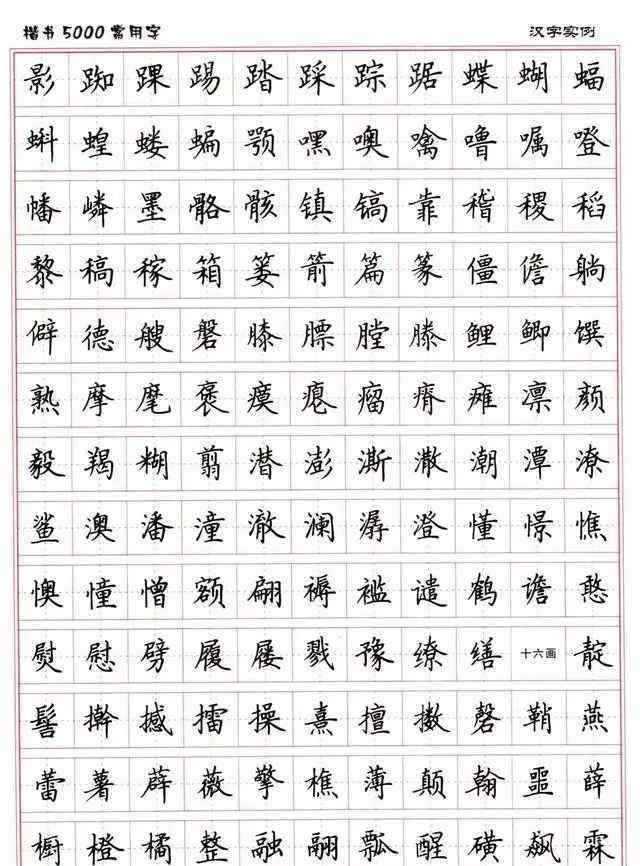 楷书5000常用字 汉字实例
影 踟 踝 踢 踏 踩 踪 踞 蝶 蝴 蝠
蝌 蝗 蝼 蝙 颚 嘿 噢 噙 噜 嘱 噔
幡 嶙 墨 骼 骸 镇 镐 靠 稽 稷 稻
黎 稿 稼 箱 篓 箭 篇 篆 僵 儋 躺
僻 德 艘 磐 膝 膘 膛 滕 鲤 鲫 馔
熟 摩 麾 褒 瘼 瘪 瘤 瘠 瘫 凛 颜
毅 羯 糊 翦 潜 澎 澌 潵 潮 潭 潦
鲨 澳 潘 潼 澈 澜 潺 澄 懂 憬 憔
懊 憧 憎 额 翩 褥 褴 谴 鹤 谵 憨
熨 慰 劈 履 屦 戮 豫 缭 缮 十六画 靛
髻 擀 撼 擂 操 熹 擅 擞 磬 鞘 燕
蕾 薯 薜 薇 擎 樵 薄 颠 翰 噩 薛
橱 橙 橘 整 融 翮 瓢 醒 磺 飙 霖